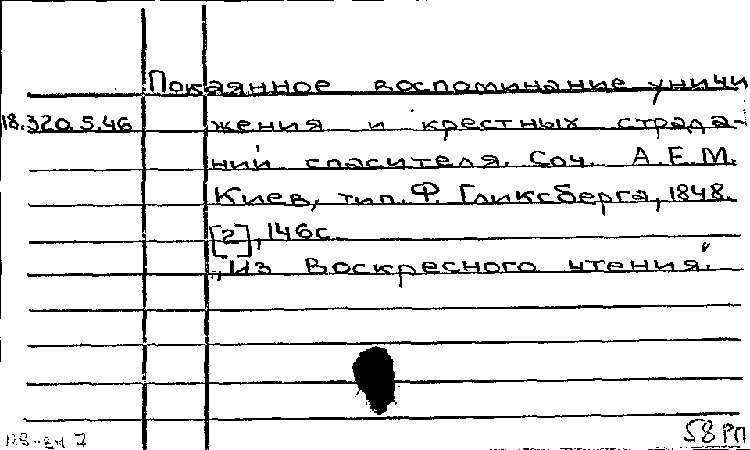 Покаянное воспоминание уничи
18.320.5.46 жения и крестных страда-
ний спасителя. Соч. А.Е.М.
Киев, тип. Ф. Гликсберга, 1848.
[2], 146с.
„Из Воскресного чтения."
58 РП